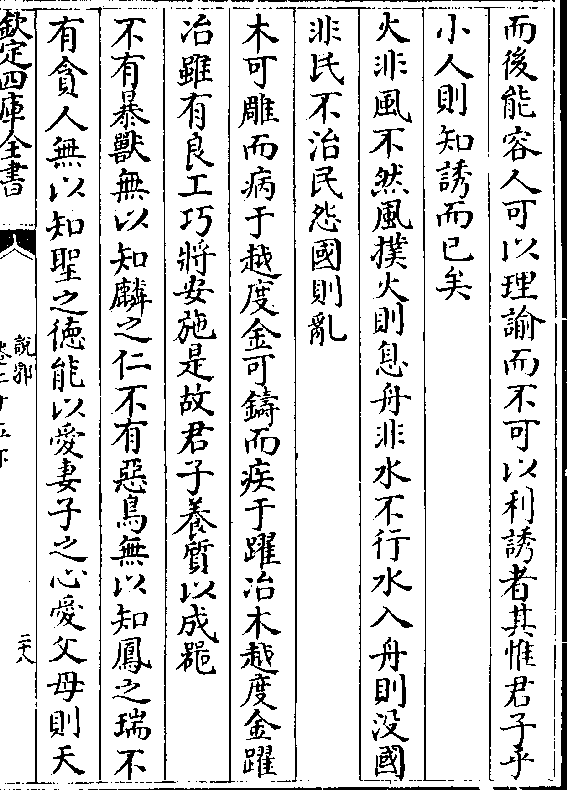 而後能容人可以理諭而不可以利誘者其惟君子乎
小人則知誘而已矣
火非風不然風撲火則息舟非水不行水入舟則没國
非民不治民怨國則亂
木可雕而病于越度金可鑄而疾于躍冶木越度金躍
冶雖有良工巧將安施是故君子養質以成噐
不有暴獸無以知麟之仁不有惡鳥無以知鳳之瑞不
有貪人無以知聖之徳能以愛妻子之心愛父母則天
欽定四庫全書
説郛
二十八